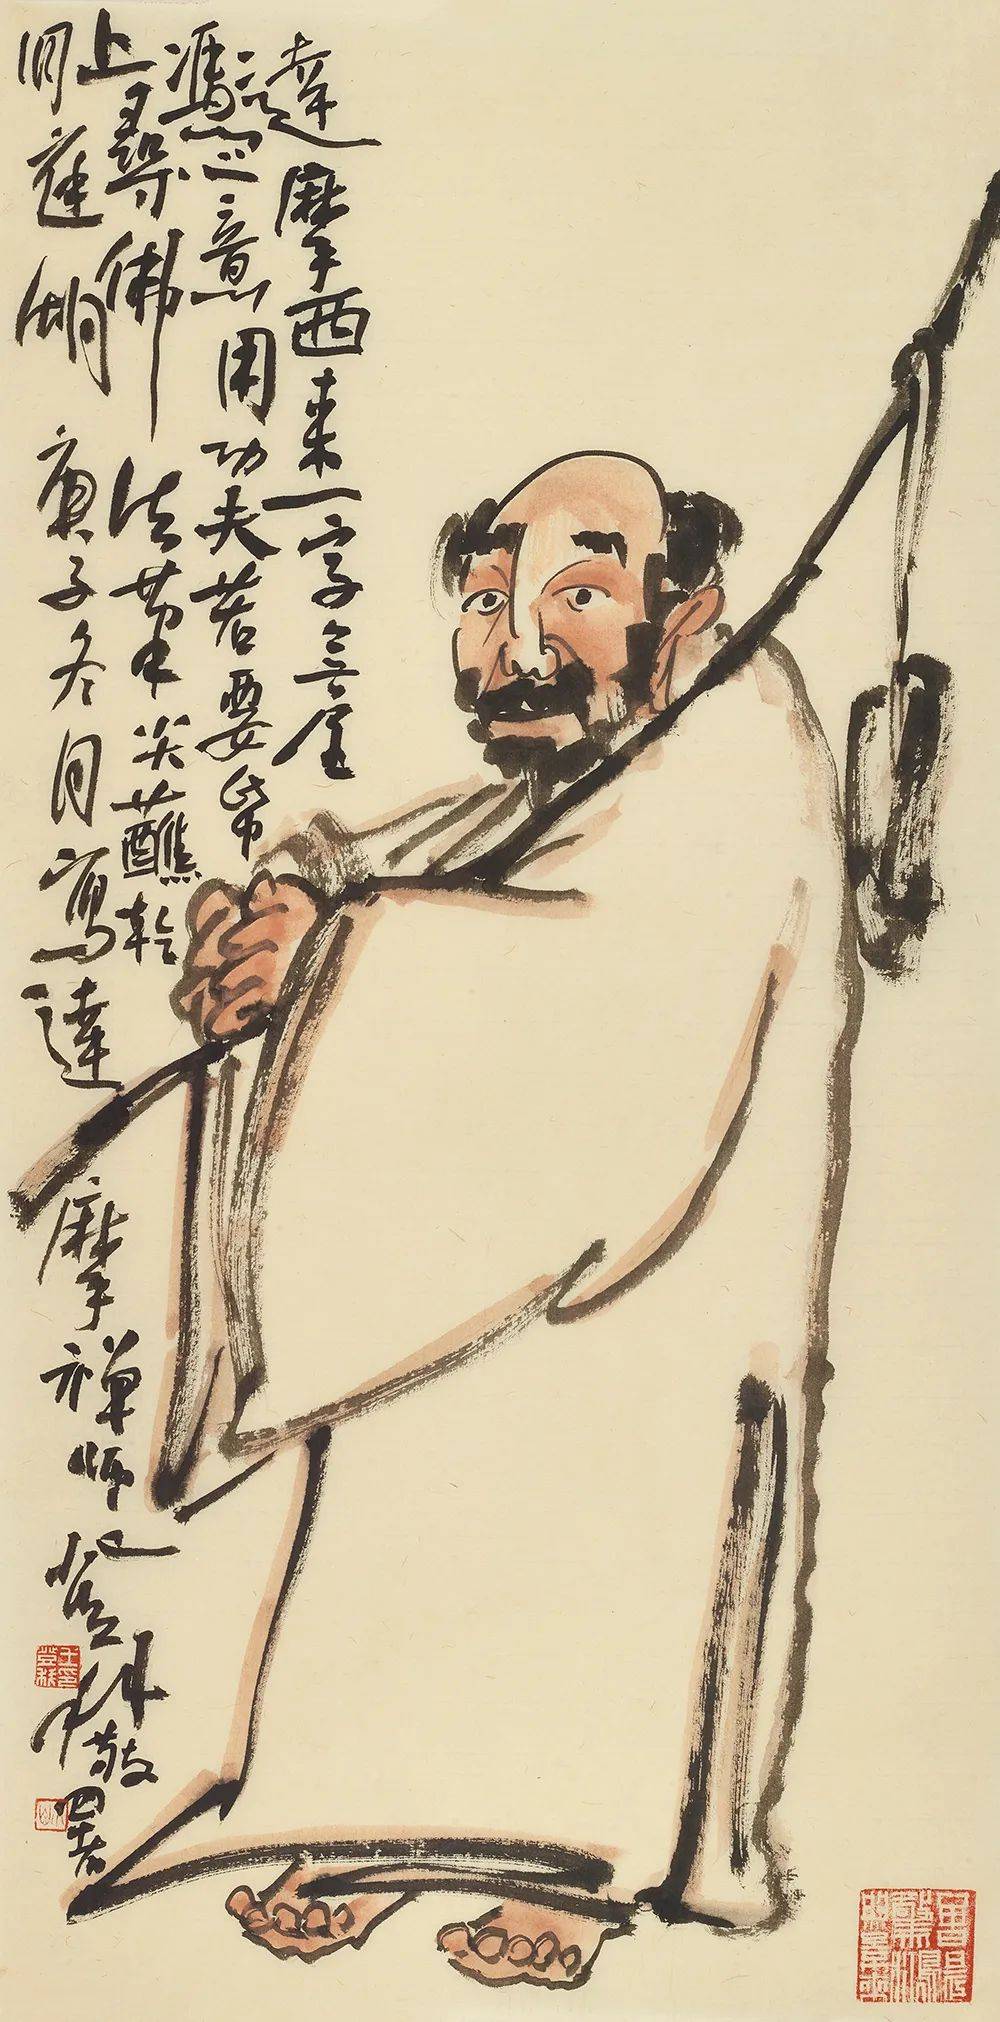 達摩西來一字無全
憑心意用功夫若要帋
上尋佛法筆尖蘸乾
洞庭湖 庚子冬月寫達摩禪師也 登科敬署